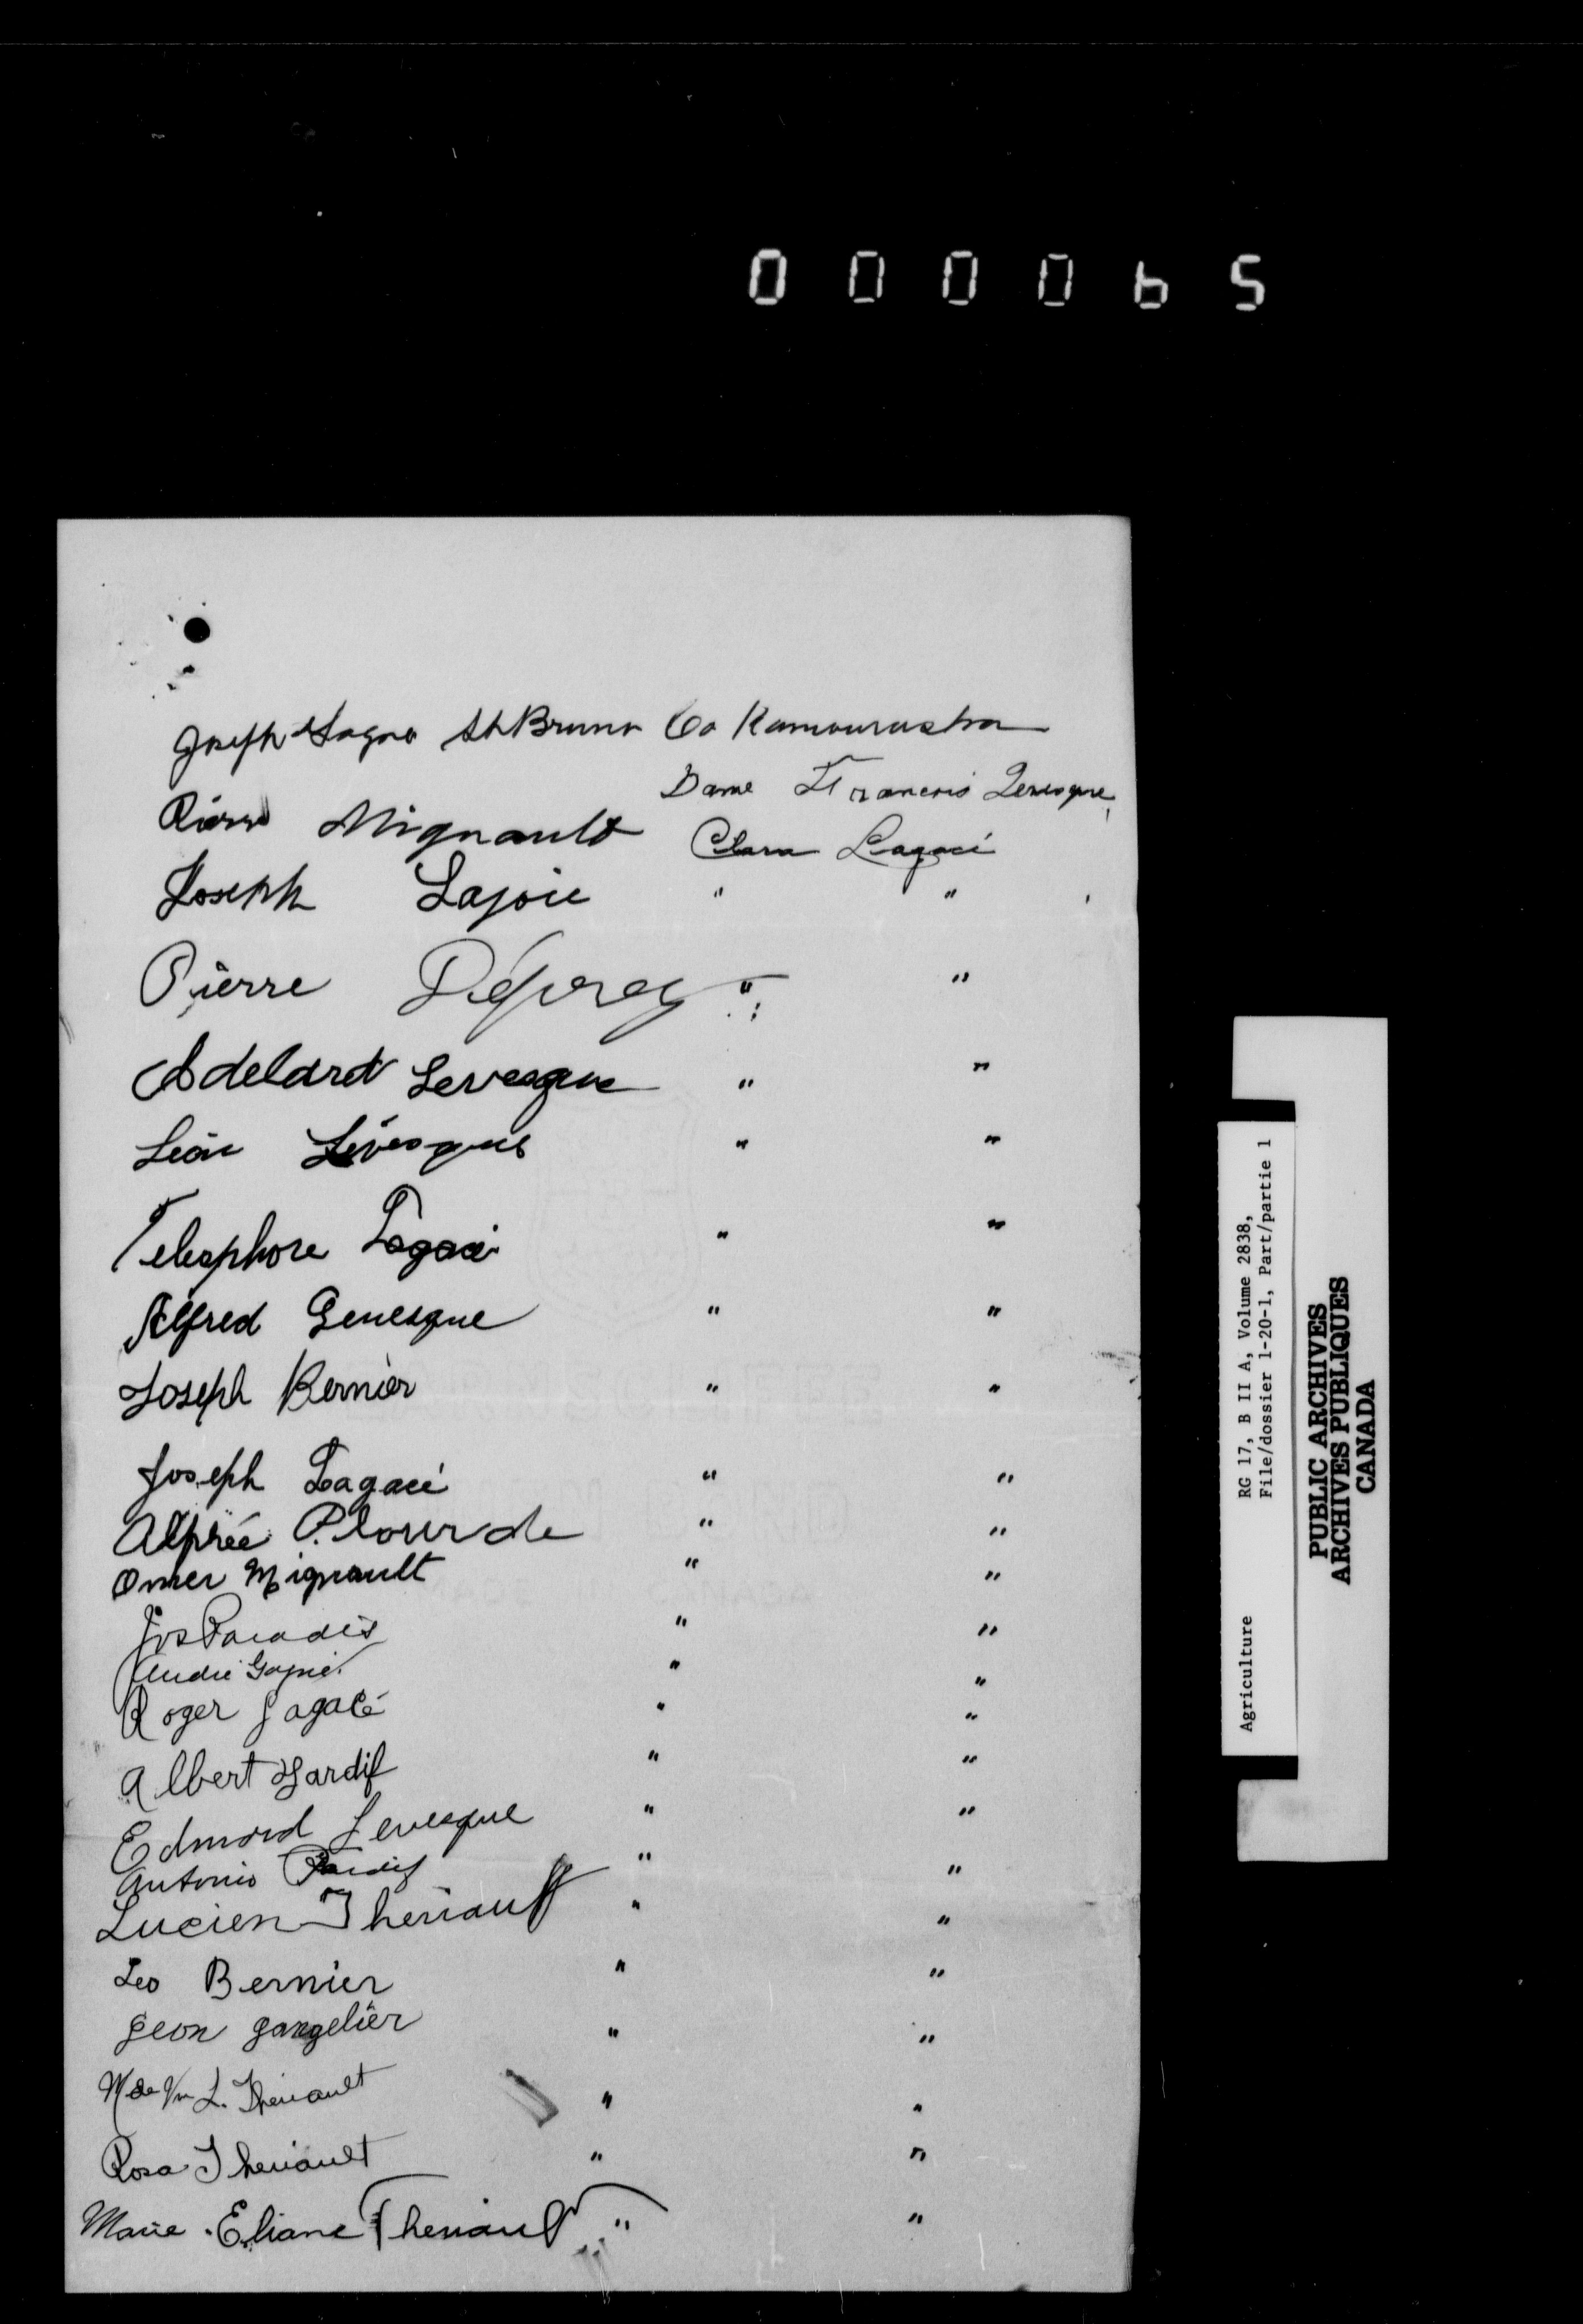 000065
Joseph Gagno St Bruno Co Kamouraska
Dame Francois Levesque
Pierre Mignault Clara Lagacé
Joseph Lajoie " "
Pierre " "
Adelard Levesque " "
Léon Lévesque " "
Telesphore Lagacé " "
Alfred Levesque " "
Joseph Bernier " "
Joseph Lagacé " "
Alphée Plourde " "
Omer Mignault " "
Jos Paradis " "
André " "
Roger Lagacé " "
Albert Tardif " "
Edmond Levesque " "
Antonio Tardif " "
Lucien Theriault " "
Leo Bernier " "
Leon Langelier " "
Mde L. Theriault " "
Rosa Theriault " "
Marie-Eliane Theriault " "
Agriculture RG 17, B II A, Volume 2838,
File/dossier 1-20-1, Part/partie 1
PUBLIC ARCHIVES
ARCHIVES PUBLIQUES
CANADA